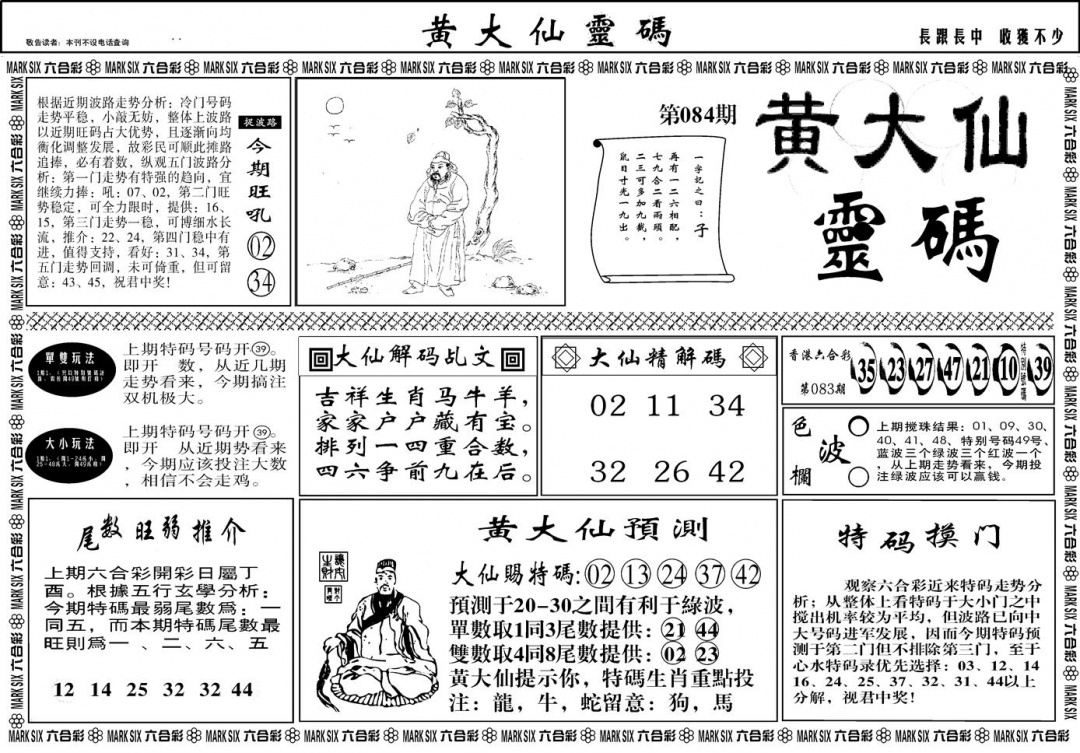 敬告读者：本刊不设电话查询
黄大仙靈碼
長跟長中 收獲不少
MARK SIX 六合彩 MARK SIX 六合彩 MARK SIX 六合彩 MARK SIX 六合彩 MARK SIX 六合彩 MARK SIX 六合彩 MARK SIX 六合彩 MARK SIX 六合彩 MARK SIX 六合彩 MARK SIX 六合彩 MARK SIX 六合彩
根据近期波路走势分析：冷门号码
走势平稳，小敲无妨，整体上波路
以近期旺码占大优势，且逐渐向均
衡化调整发展，故彩民可顺此摊路
追捧，必有着数，纵观五门波路分
析：第一门走势有特强的趋向，宜
继续力捧：吼：07、02，第二门旺
势稳定，可全力限时，提供：16、
15，第三门走势一稳，可博细水长
流，推介：22、24，第四门稳中有
进，值得支持，看好：31、34，第
五门走势回调，未可倚重，但可留
意：43、45，祝君中奖！
捉波路
今期旺吼
02
34
第084期
一字記之曰：子
再有一二六相配，
七九合二看兩頭。
二三可多加九載，
鼠目寸光一九出。
黄大仙
靈碼
單雙玩法
上期特码号码开㊴。
即开　数，从近几期
走势看来，今期搞注
双机极大。
大小玩法
上期特码号码开㊴。
即开　从近期势看来
，今期应该投注大数
，相信不会走鸡。
大仙解码乩文
吉祥生肖马牛羊，
家家户户藏有宝。
排列一四重合数，
四六争前九在后。
大仙精解碼
02 11 34
32 26 42
香港六合彩
第083期
35 23 27 47 21 10 特别號碼 39
色波欄
上期搅珠结果：01、09、30、
40、41、48、特别号码49号、
蓝波三个绿波三个红波一个
，从上期走势看来，今期投
注绿波应该可以赢钱。
尾数旺弱推介
上期六合彩開彩日屬丁
酉。根據五行玄學分析：
今期特碼最弱尾數爲：一
同五，而本期特碼尾數最
旺則爲一 、二、六、五
12 14 25 32 32 44
黄大仙預測
大仙賜特碼：02 13 24 37 42
預測于20-30之間有利于綠波，
單數取1同3尾數提供：21 44
雙數取4同8尾數提供：02 23
黄大仙提示你，特碼生肖重點投
注：龍，牛，蛇留意：狗，馬
特码摸门
观察六合彩近来特码走势分
析；从整体上看特码于大小门之中
搅出机率较为平均，但波路已向中
大号码进军发展，因而今期特码预
测于第二门但不排除第三门，至于
心水特码录优先选择：03、12、14
16、24、25、37、32、31、44以上
分解，祝君中奖！
MARK SIX 六合彩 MARK SIX 六合彩 MARK SIX 六合彩 MARK SIX 六合彩 MARK SIX 六合彩 MARK SIX 六合彩 MARK SIX 六合彩 MARK SIX 六合彩 MARK SIX 六合彩 MARK SIX 六合彩 MARK SIX 六合彩